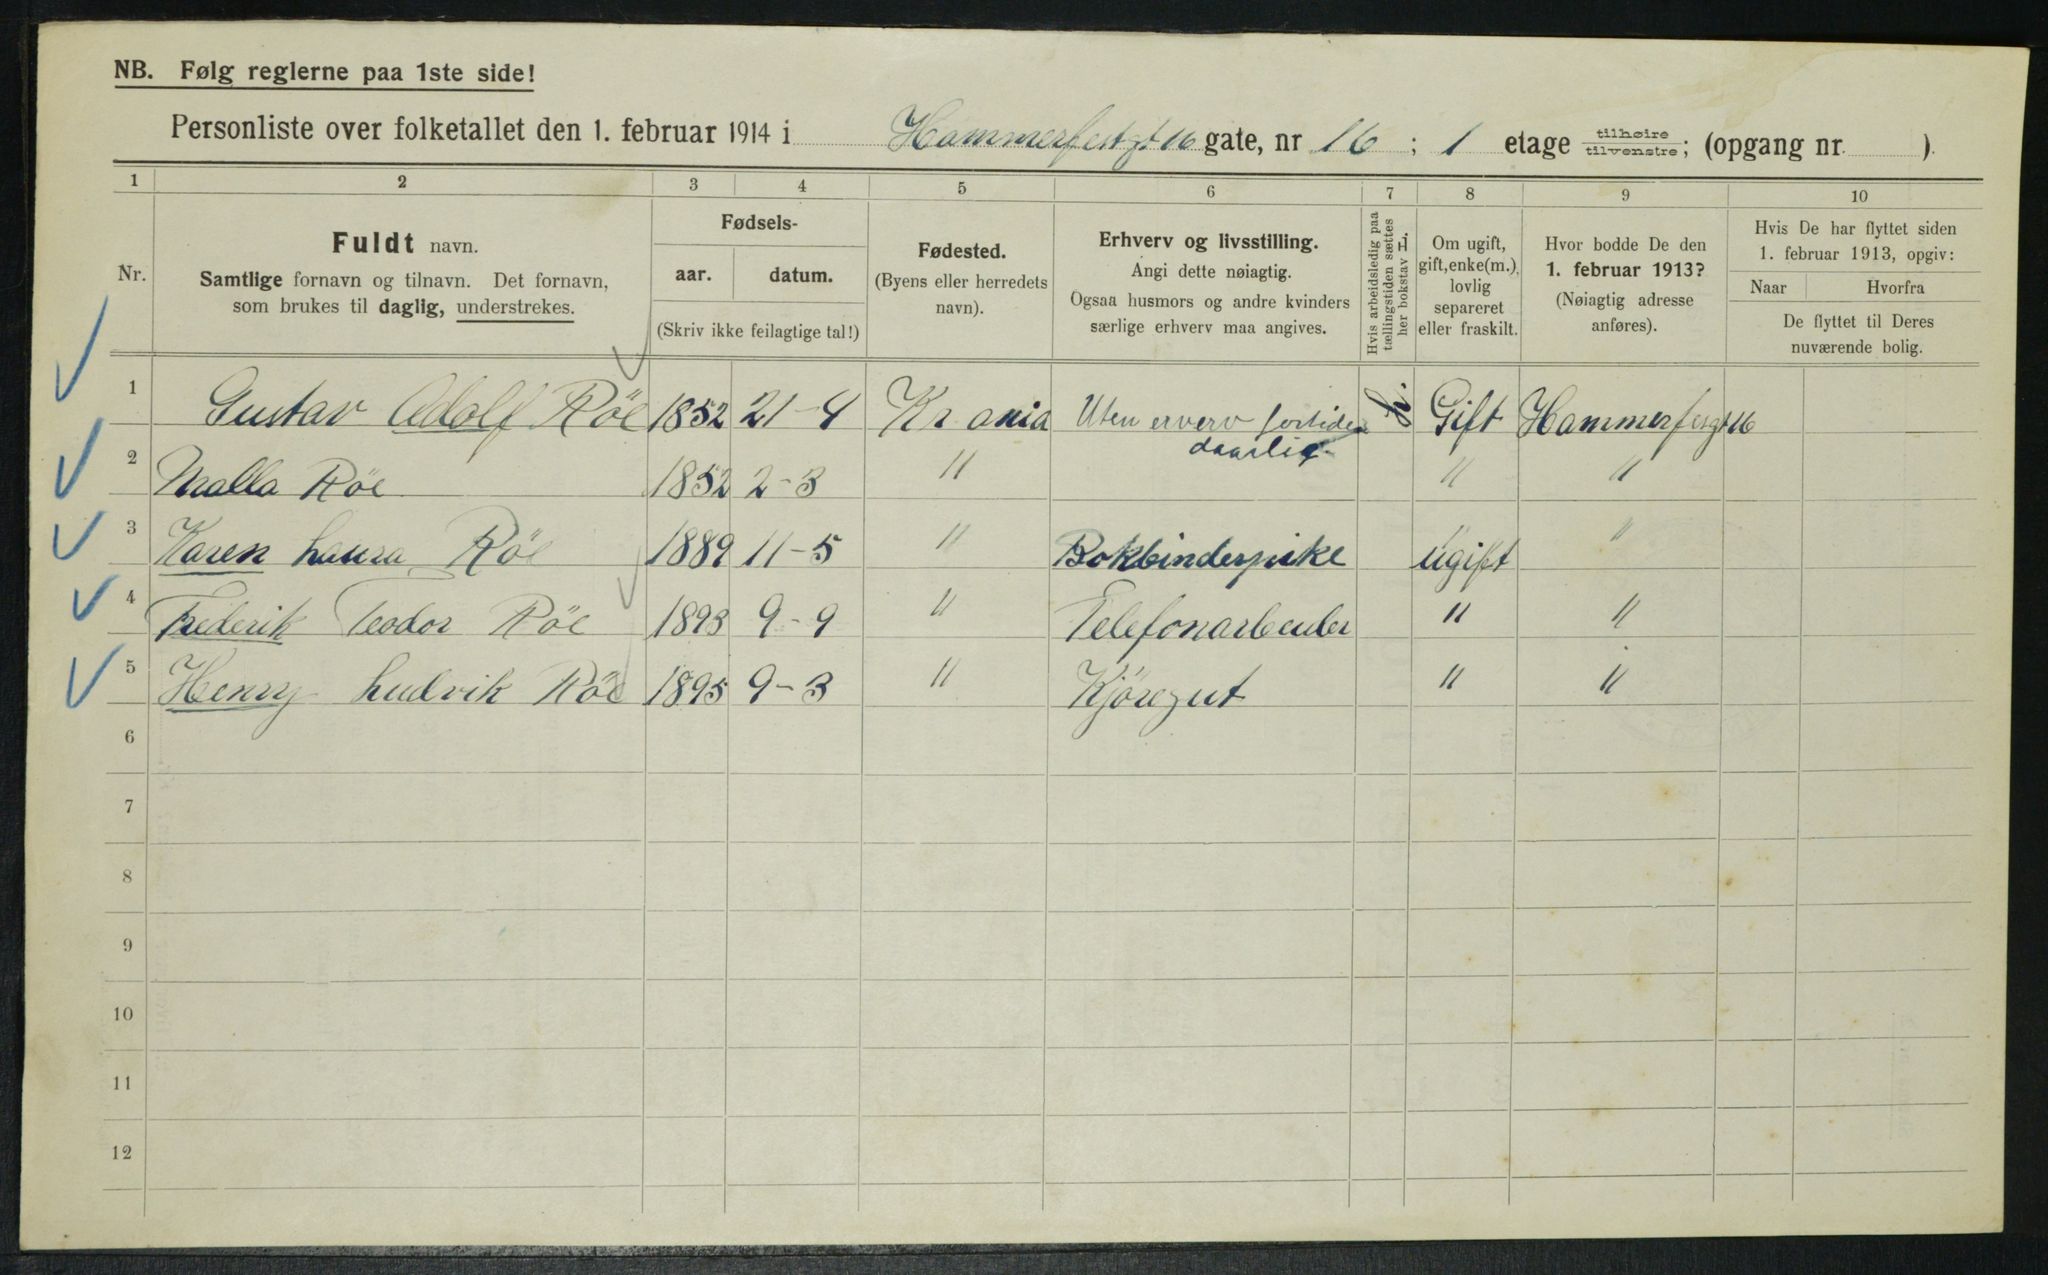 NB. Følg reglerne paa 1ste side!
Personliste over folketallet den 1. februar 1914 i Hammerfestgt 16 gate, nr 16 ; 1 etage tilhøire tilvenstre; (opgang nr. ).
1 2 3 4 5 6 7 8 9 10
Nr.
Fuldt navn.
Samtlige fornavn og tilnavn. Det fornavn,
som brukes til daglig, understrekes.
Fødsels-
aar. datum.
(Skriv ikke feilagtige tal!)
Fødested.
(Byens eller herredets
navn).
Erhverv og livsstilling.
Angi dette nøiagtig.
Ogsaa husmors og andre kvinders
særlige erhverv maa angives.
Hvis arbeidsledig paa
tællingstiden sættes
her bokstav L.
Om ugift,
gift, enke(m.),
lovlig
separeret
eller fraskilt.
Hvor bodde De den
1. februar 1913?
(Nøiagtig adresse
anføres).
Hvis De har flyttet siden
1. februar 1913, opgiv:
Naar Hvorfra
De flyttet til Deres
nuværende bolig.
1 Gustav Adolf Röe 1852 21-4 Kr.ania Uten erverv fortiden Gift Hammerfesgt 16
daarlig
2 Malla Röe 1852 2-3 " " "
3 Karen Laura Röe 1889 11-5 " Bokbinderpike ugift "
4 Frederik Teodor Röe 1893 9-9 " Telefonarbeider " "
5 Henry Ludvik Röe 1895 9-3 " Kjöregut " "
6
7
8
9
10
11
12